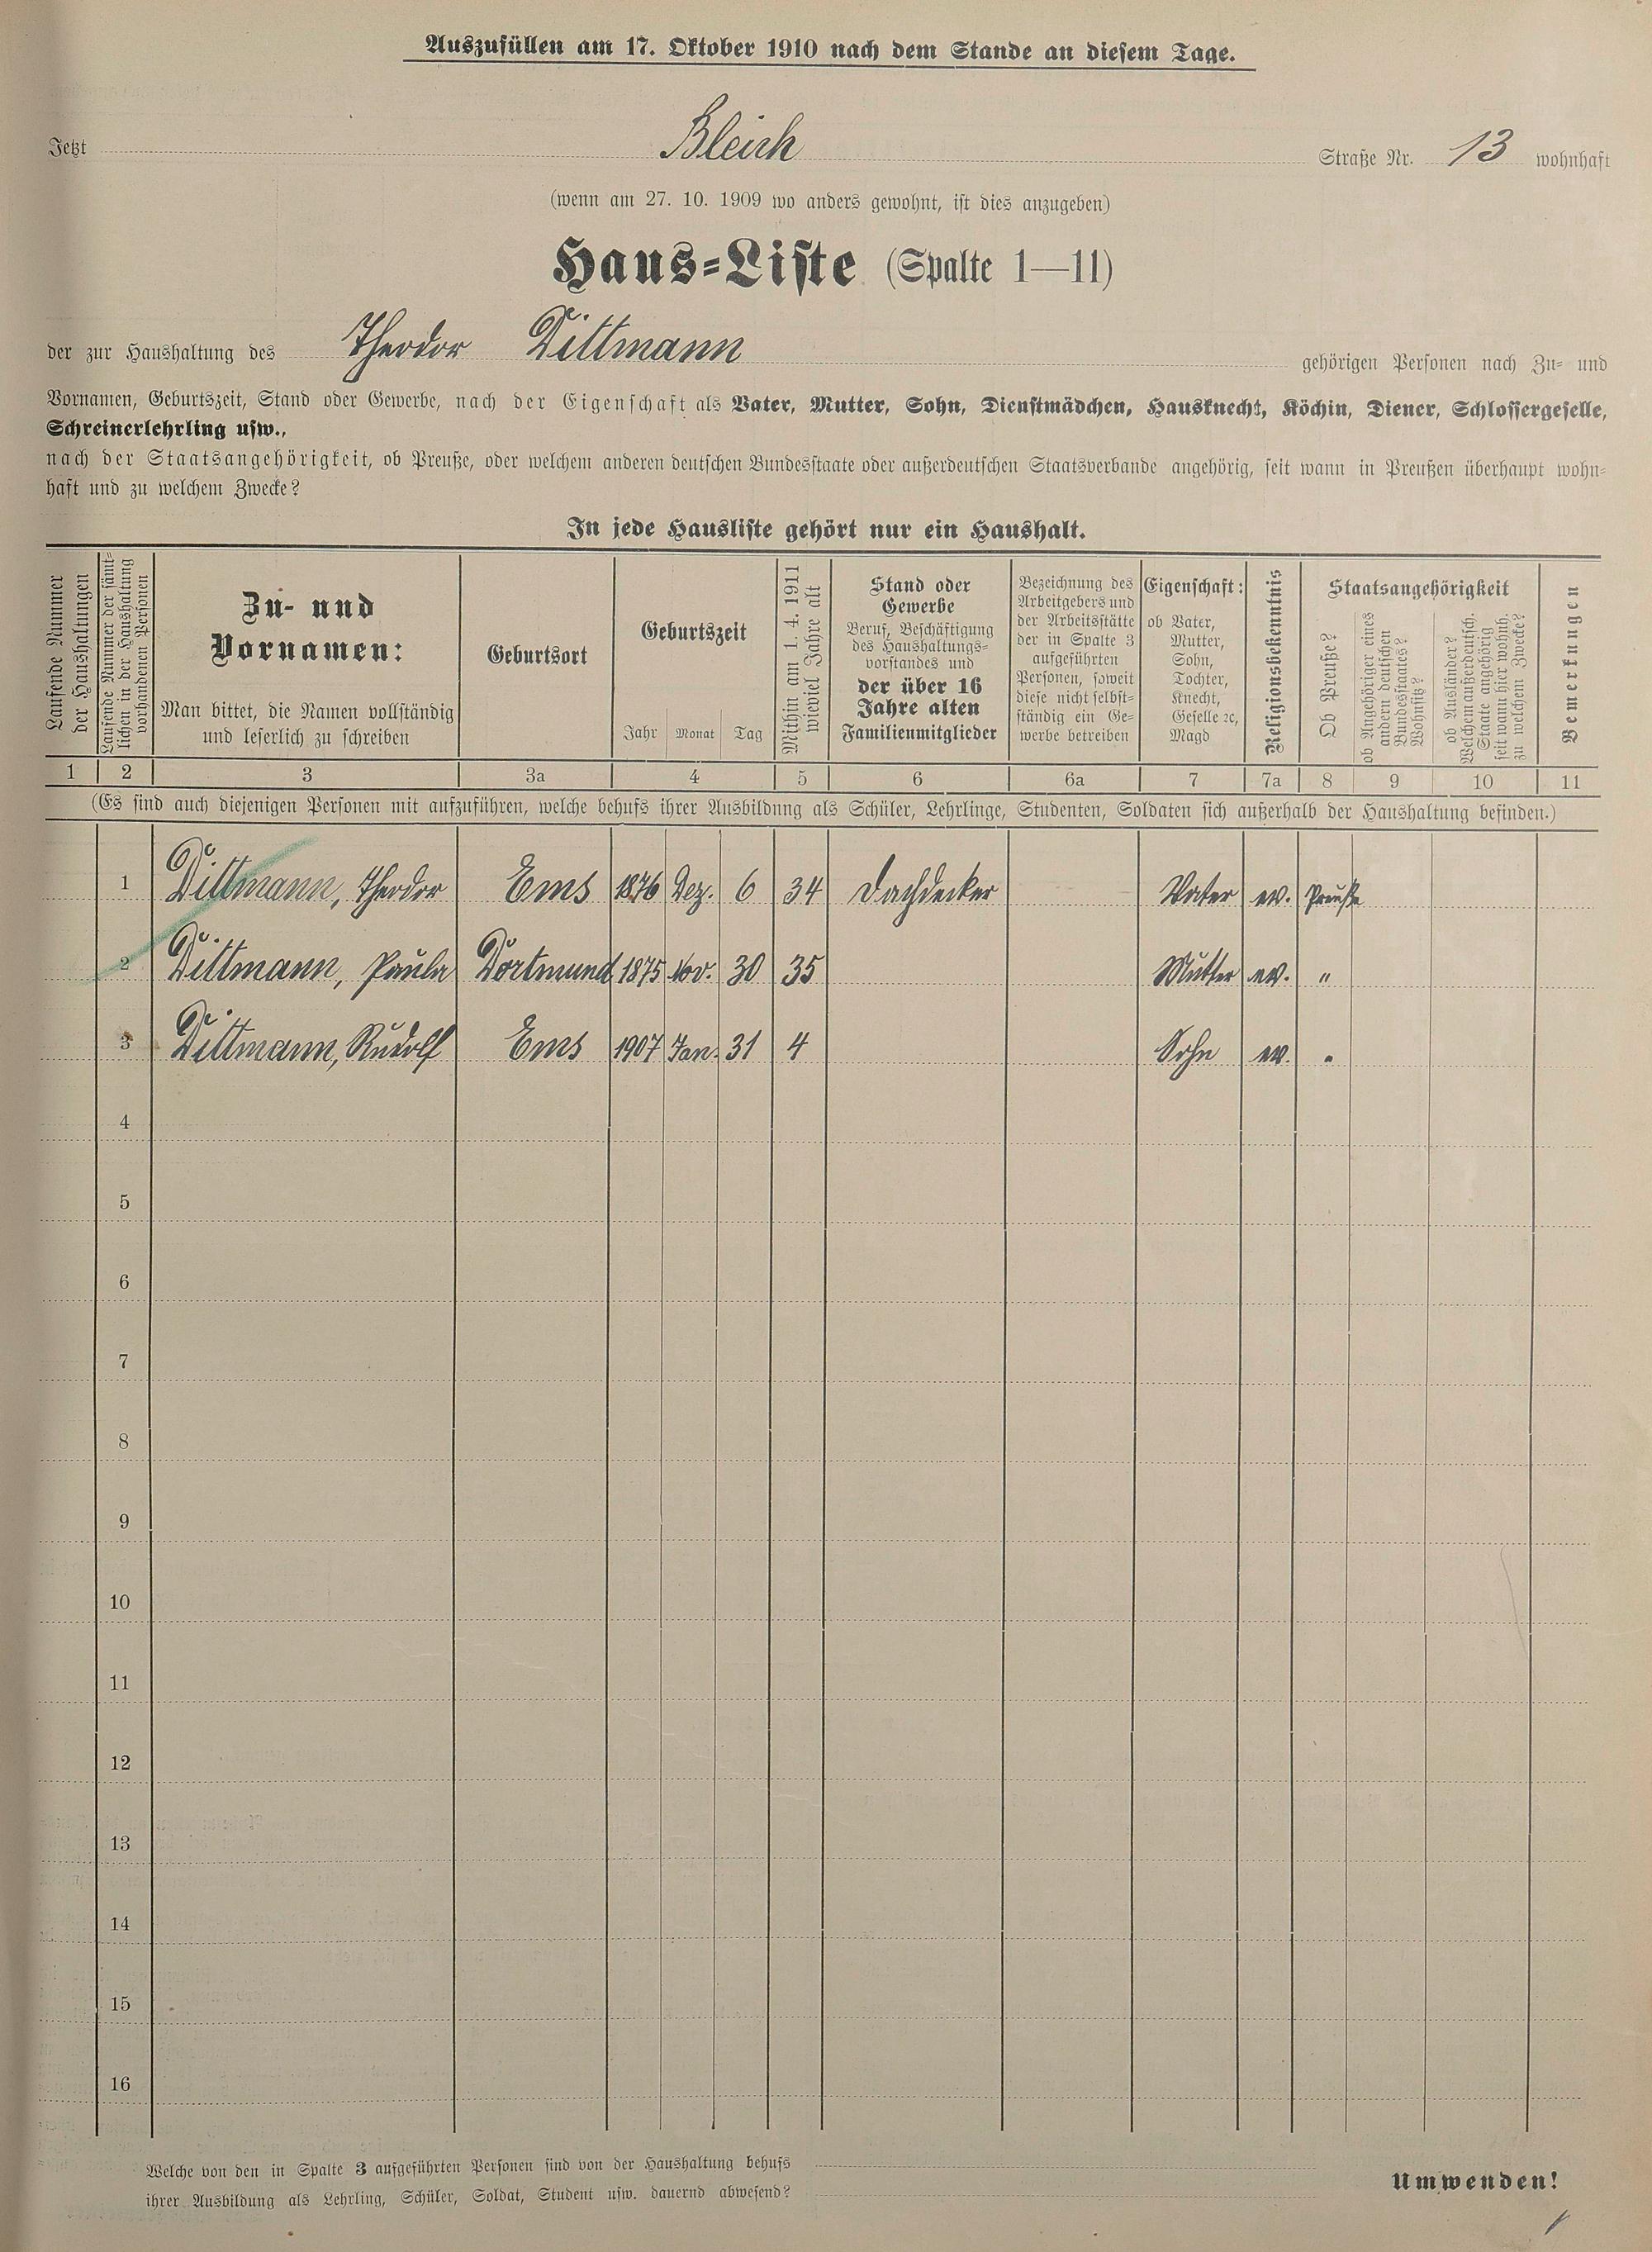 Auszufüllen am 17. Oktober 1910 nach dem Stande an diesem Tage.
Jetzt Bleich Straße Nr. 13 wohnhaft
(wenn am 27. 10. 1909 wo anders gewohnt, ist dies anzugeben)
Haus-Liste (Spalte 1—11)
der zur Haushaltung des Theodor Dittmann gehörigen Personen nach Zu- und
Vornamen, Geburtszeit, Stand oder Gewerbe, nach der Eigenschaft als Vater, Mutter, Sohn, Dienstmädchen, Hausknecht, Köchin, Diener, Schlossergeselle,
Schreinerlehrling usw.,
nach der Staatsangehörigkeit, ob Preuße, oder welchem anderen deutschen Bundesstaate oder außerdeutschen Staatsverbande angehörig, seit wann in Preußen überhaupt wohn-
haft und zu welchem Zwecke?
In jede Hausliste gehört nur ein Haushalt.
Laufende Nummer
der Haushaltungen
Laufende Nummer der sämt-
lichen in der Haushaltung
vorhandenen Personen
Zu- und
Vornamen:
Man bittet, die Namen vollständig
und leserlich zu schreiben
Geburtsort
Geburtszeit
Jahr Monat Tag
Mithin am 1. 4. 1911
wieviel Jahre alt
Stand oder
Gewerbe
Beruf, Beschäftigung
des Haushaltungs-
vorstandes und
der über 16
Jahre alten
Familienmitglieder
Bezeichnung des
Arbeitgebers und
der Arbeitsstätte
der in Spalte 3
aufgeführten
Personen, soweit
diese nicht selbst-
ständig ein Ge-
werbe betreiben
Eigenschaft:
ob Vater,
Mutter,
Sohn,
Tochter,
Knecht,
Geselle ꝛc,
Magd
Religionsbekenntnis
Staatsangehörigkeit
Ob Preuße?
ob Angehöriger eines
andern deutschen
Bundesstaates?
Wohnsitz?
ob Ausländer?
Welchem außerdeutsch.
Staate angehörig
seit wann hier wohnh.
zu welchem Zwecke?
Bemerkungen
1 2 3 3a 4 5 6 6a 7 7a 8 9 10 11
(Es sind auch diejenigen Personen mit aufzuführen, welche behufs ihrer Ausbildung als Schüler, Lehrlinge, Studenten, Soldaten sich außerhalb der Haushaltung befinden.)
1 Dittmann, Theodor Ems 1876 Dez. 6 34 Dachdecker Vater ev. Preuße
2 Dittmann, Paula Dortmund 1875 Nov. 30 35 Mutter ev. "
3 Dittmann, Rudolf Ems 1907 Jan. 31 4 Sohn ev. "
4
5
6
7
8
9
10
11
12
13
14
15
16
Welche von den in Spalte 3 aufgeführten Personen sind von der Haushaltung behufs
ihrer Ausbildung als Lehrling, Schüler, Soldat, Student usw. dauernd abwesend?
Umwenden!